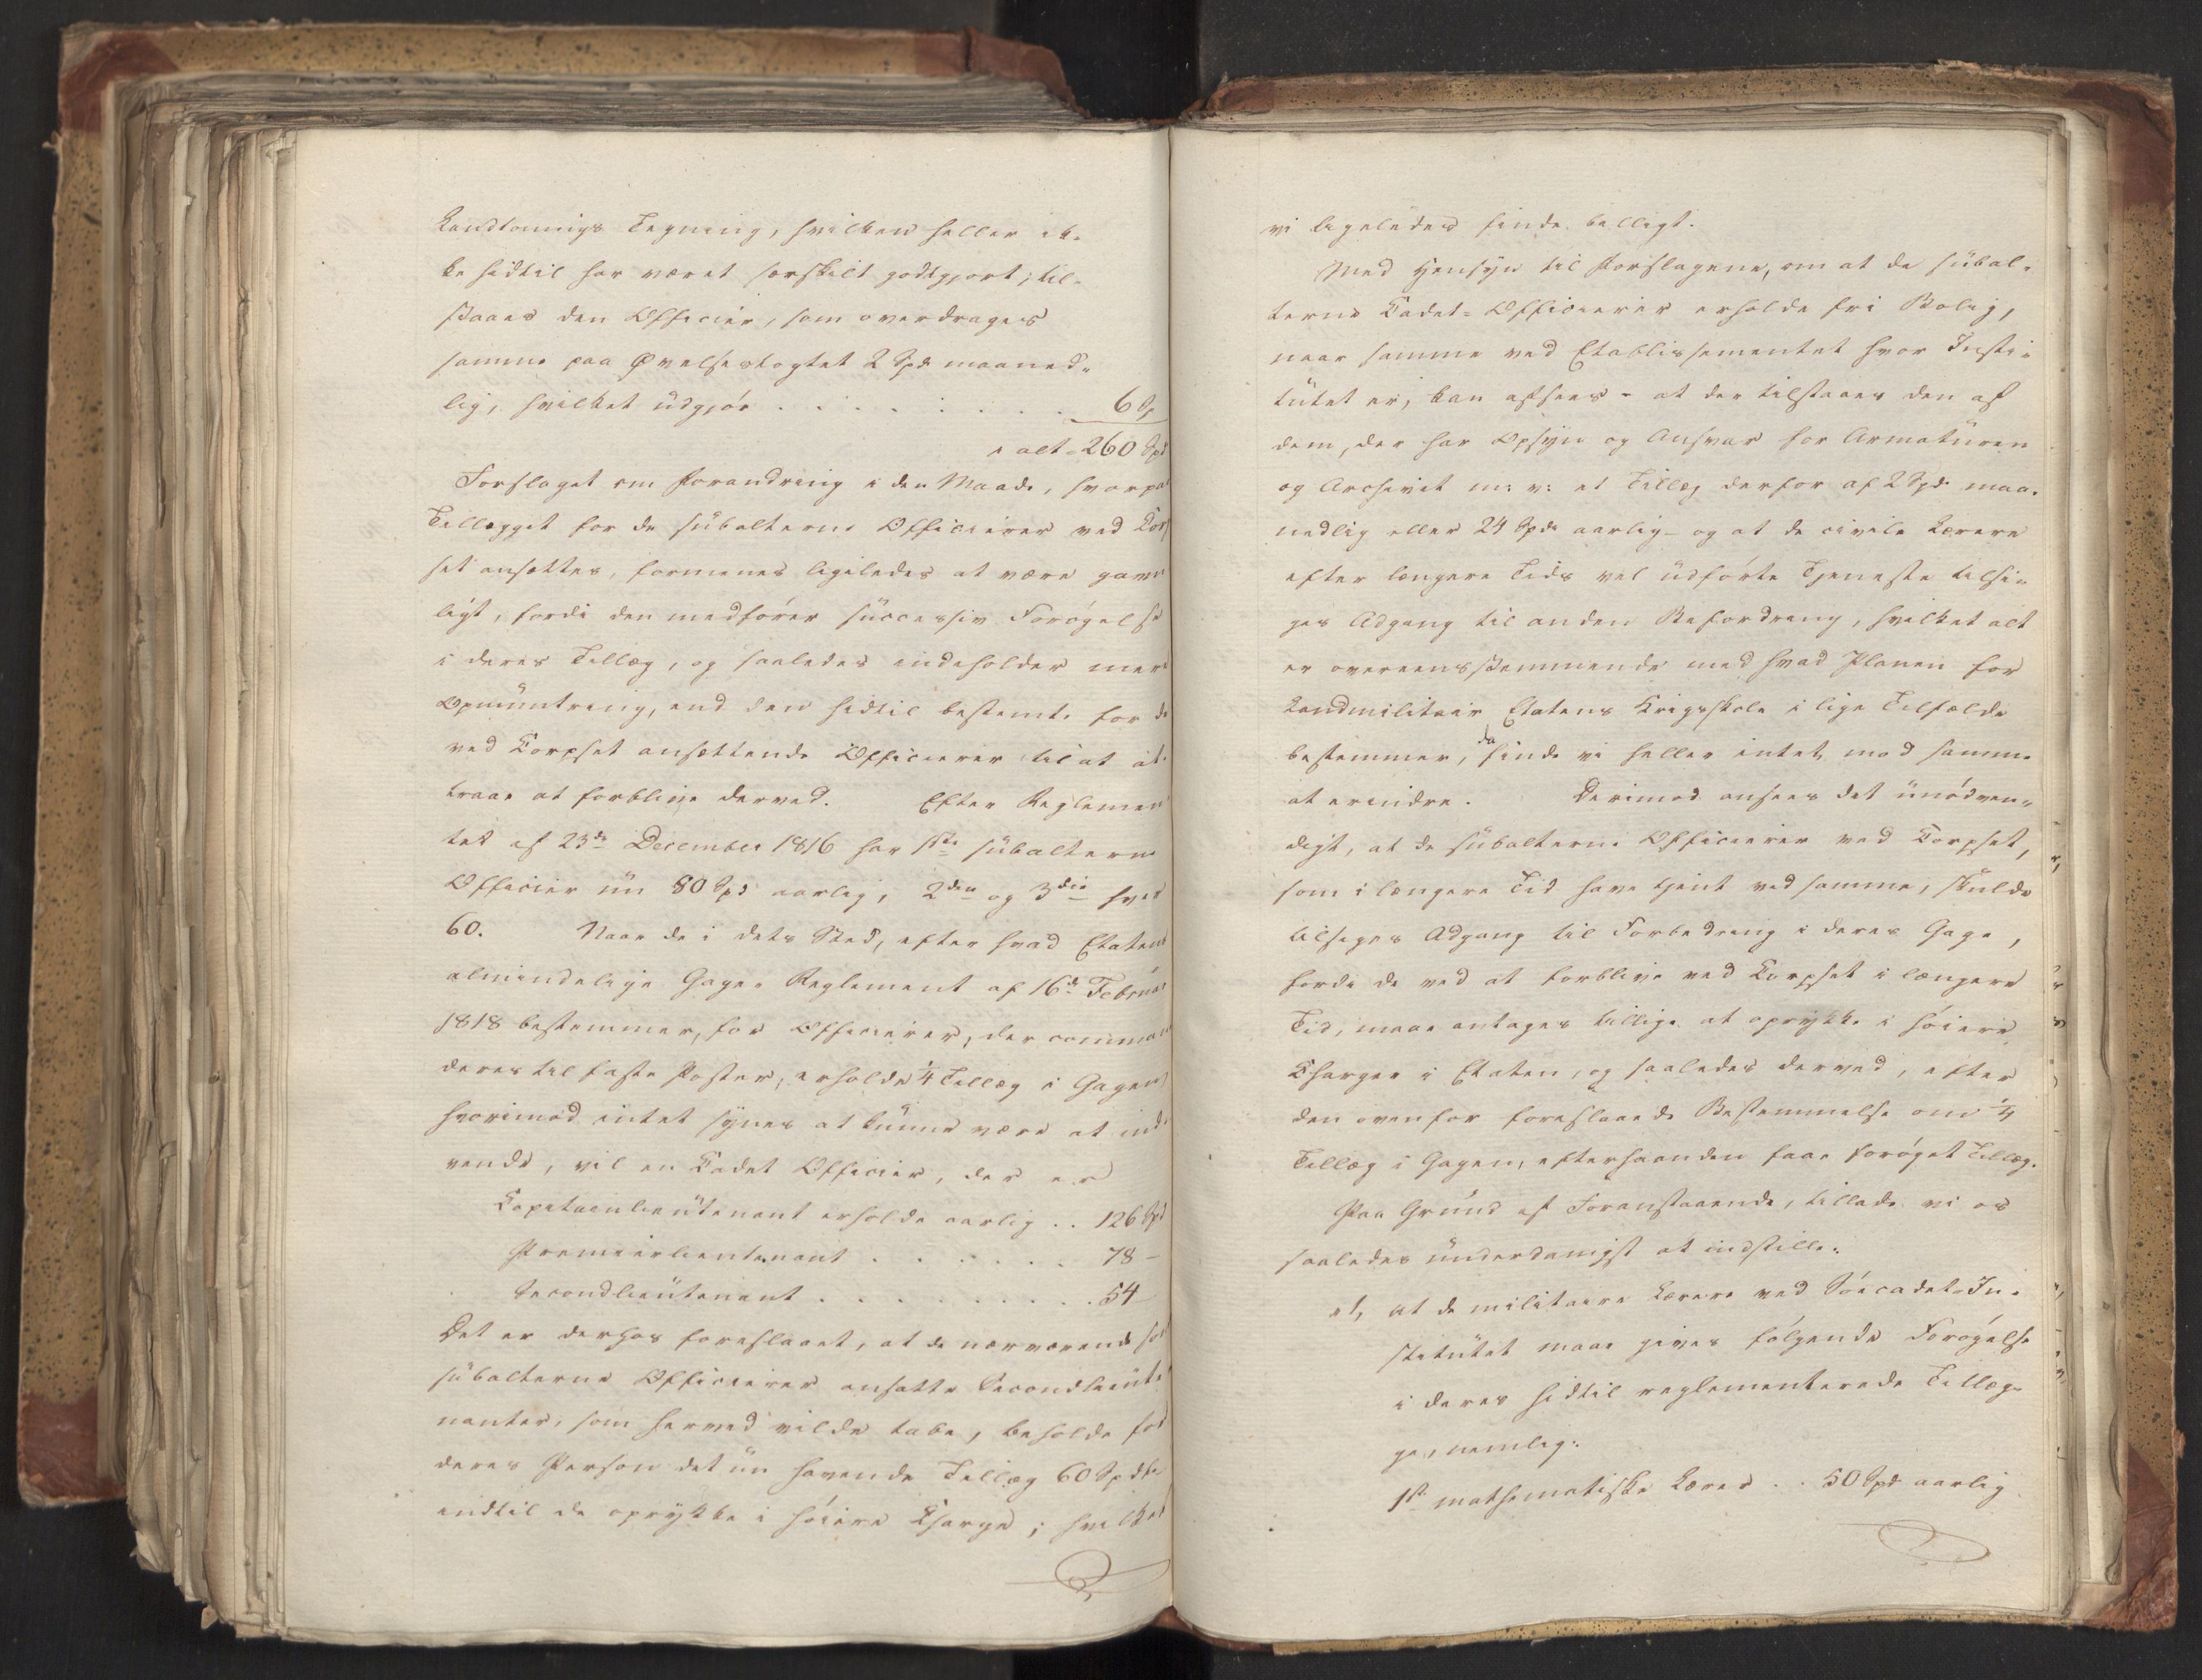 Landtonings Tegning, hvilken heller ik-
ke hidtil har været særskilt godtgjort, til-
staaes den Officier, som overdrages
samme paa Øvelsestogtet 2 Spd maaned-
lig, hvilket udgjør . . . . . . . . 6 Sp
i alt = 260 Spd
Forslaget om Forandring i den Maade, hvorpaa
Tillægget for de subalterne Officierer ved Cor-
set ansættes, formenes ligeledes at være gavn-
ligt, fordi den medfører successiv Forøgelse
i deres Tillæg, og saaledes indeholder mere
Opmuntring, end den hidtil bestemte for de
ved Corpset ansættende Officierer til at at-
traae at forblive derved. Efter Reglemen-
tet af 23de December 1816 har 1ste subalterne
Officier nu 80 Spd aarlig, 2den og 3die hver
60. Naar de i dets Sted, efter hvad Etatens
almindelige Gage-Reglement af 16de Februar
1818 bestemmer, for Officierer, der comman-
deres til faste Poster, erholde 1/4 Tillæg i Gagen
hvorimod intet synes at kunne være at ind-
vende, vil en Cadet Officier, der er
Capitainlieutenant erholde aarlig . . 126 Spd
Premierlieutenant . . . . . . 78 —
Secondlieutenant . . . . . . . . . 54 —
Det er derhos foreslaaet, at de nærværende som
subalterne Officierer ansatte Secondlieute-
nanter, som herved vilde tabe, beholde for
deres Person det nu havende Tillæg 60 Spdlr
indtil de oprykke i høiere Charge; hvilket
vi ligeledes finde billigt.
Med Hensyn til Forslagene, om at de subal-
terne Cadet-Officierer erholde fri Bolig,
naar samme ved Etablissementet hvor Insti-
tutet er, kan afsees - at der tilstaaes den af
dem, der har Opsyn og Ansvar for Armaturen
og Archivet m: v: et Tillæg derfor af 2 Spd maa-
nedlig eller 24 Spdr aarlig - og at de civile Lærere
efter længere Tids vel udførte Tjeneste tilsi-
ges Adgang til anden Befordring, hvilket alt
er overeensstemmende med hvad Planen for
Landmilitair Etatens Krigsskole i lige Tilfælde
bestemmer, da finde vi heller intet mod samme
at erindre. Derimod ansees det unødven-
digt, at de subalterne Officierer ved Corpset,
som i længere Tid have tjent ved samme, skulde
tilsiges Adgang til Forbedring i deres Gage,
fordi de ved at forblive ved Corpset i længere
Tid, maae antages tillige at oprykke i høiere
Charger i Etaten, og saaledes derved, efter
den ovenfor foreslaaede Bestemmelse om 1/4
Tillæg i Gagen, efterhaanden faae forøget Tillæg.
Paa Grund af Foranstaaende, tillade vi os
saaledes underdanigst at indstille:
at, at de militaire Lærere ved Søecadet-In-
stitutet maae gives følgende Forøgelse
i deres hidtil reglementerede Tillæg-
ge, nemlig:
1ste mathematiske Lærer . . 50 Spd aarlig